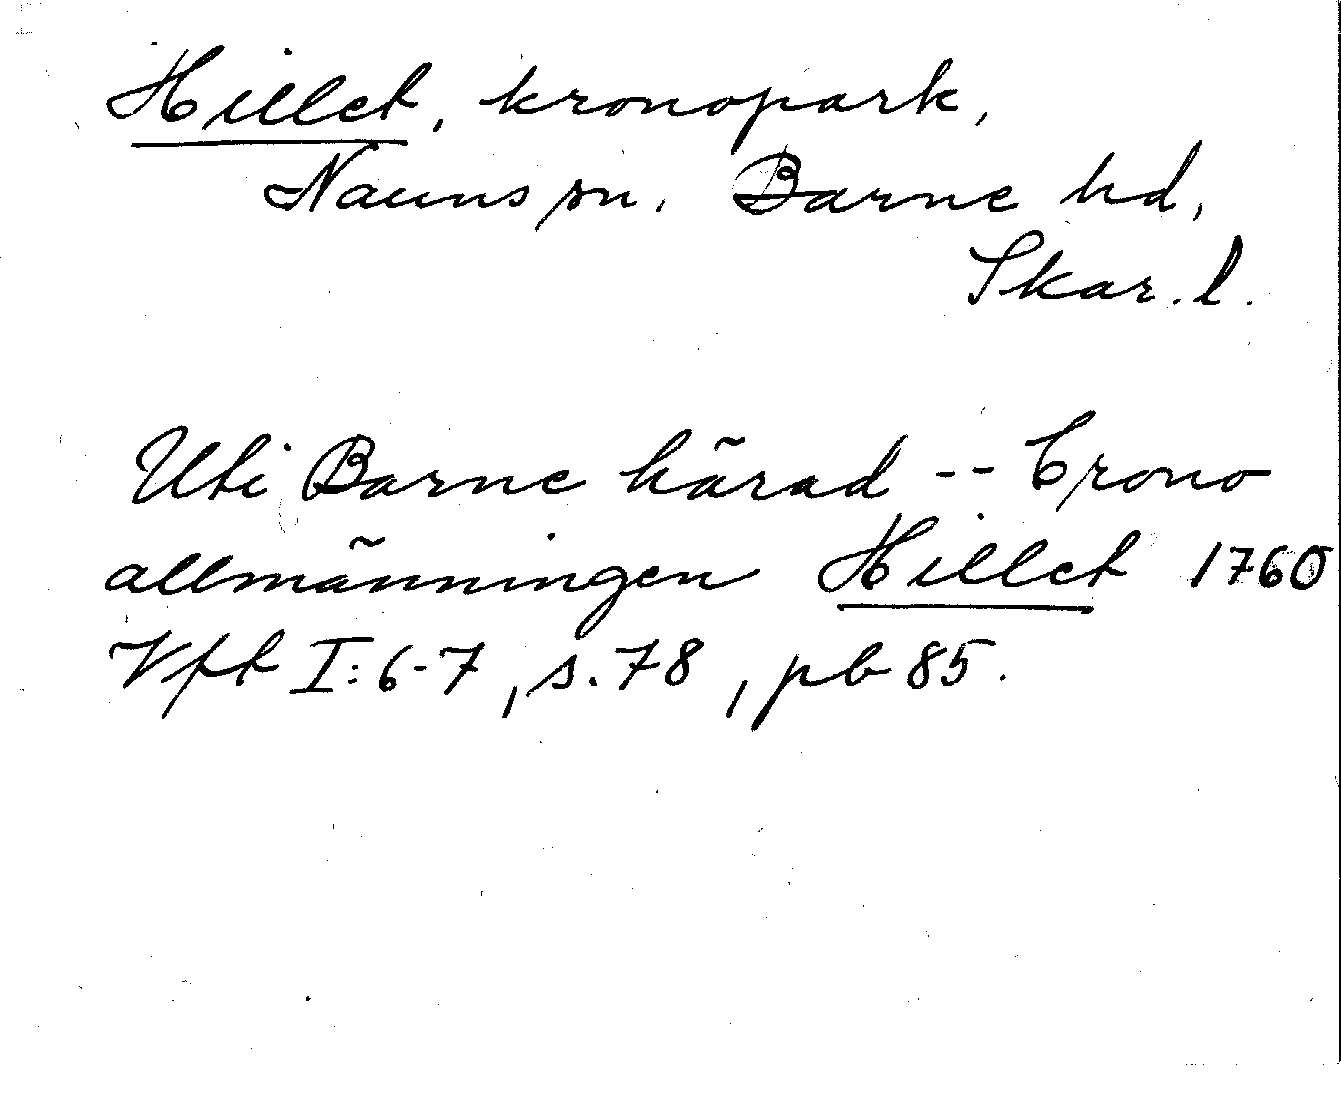 Hillet, kronopark,
Nauns sn. Barne hd,
Skar. l.
Uti Barne härad -- Crono
allmänningen Hillet 1760
Vft I:6-7, s. 78, pb 85.